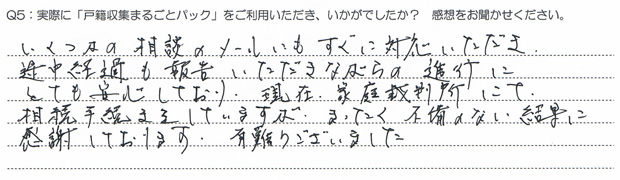 Q5:実際に「戸籍収集まるごとパック」をご利用いただき、いかがでしたか? 感想をお聞かせください。
いくつかの相談のメールにもすぐに対応いただき、
途中経過も報告いただきながらの進行に
とても安心しており、現在、家庭裁判所にて、
相続手続きをしていますが、まったく不備のない結果に
感謝しております。有難うございました